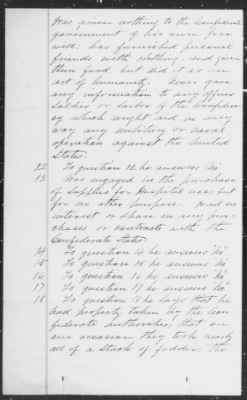 Has given nothing to the Confederate
government of his own free
will: has furnished personal
friends with clothing and given
them food but did it as an
act of humanity. Never gave
any information to any officer
soldier or sailor of the Confedera-
cy which might aid in any
way any military or naval
operation against the United
States.
12 To question 12 he answers "No"
13 Was engaged in the purchase
of supplies for Hospital use, but
for no other purpose. Had no
interest or share in any pur-
chases or contracts with the
Confederate States
14 To question 14 he answers "No"
15 To question 15 he answers "No"
16 To question 16 he answers "No"
17 To question 17 he answers "No"
18 To question 18 he says that he
had property taken by the Con-
federate authorities, that on
one occasion they took nearly
all of a stack of fodder, the